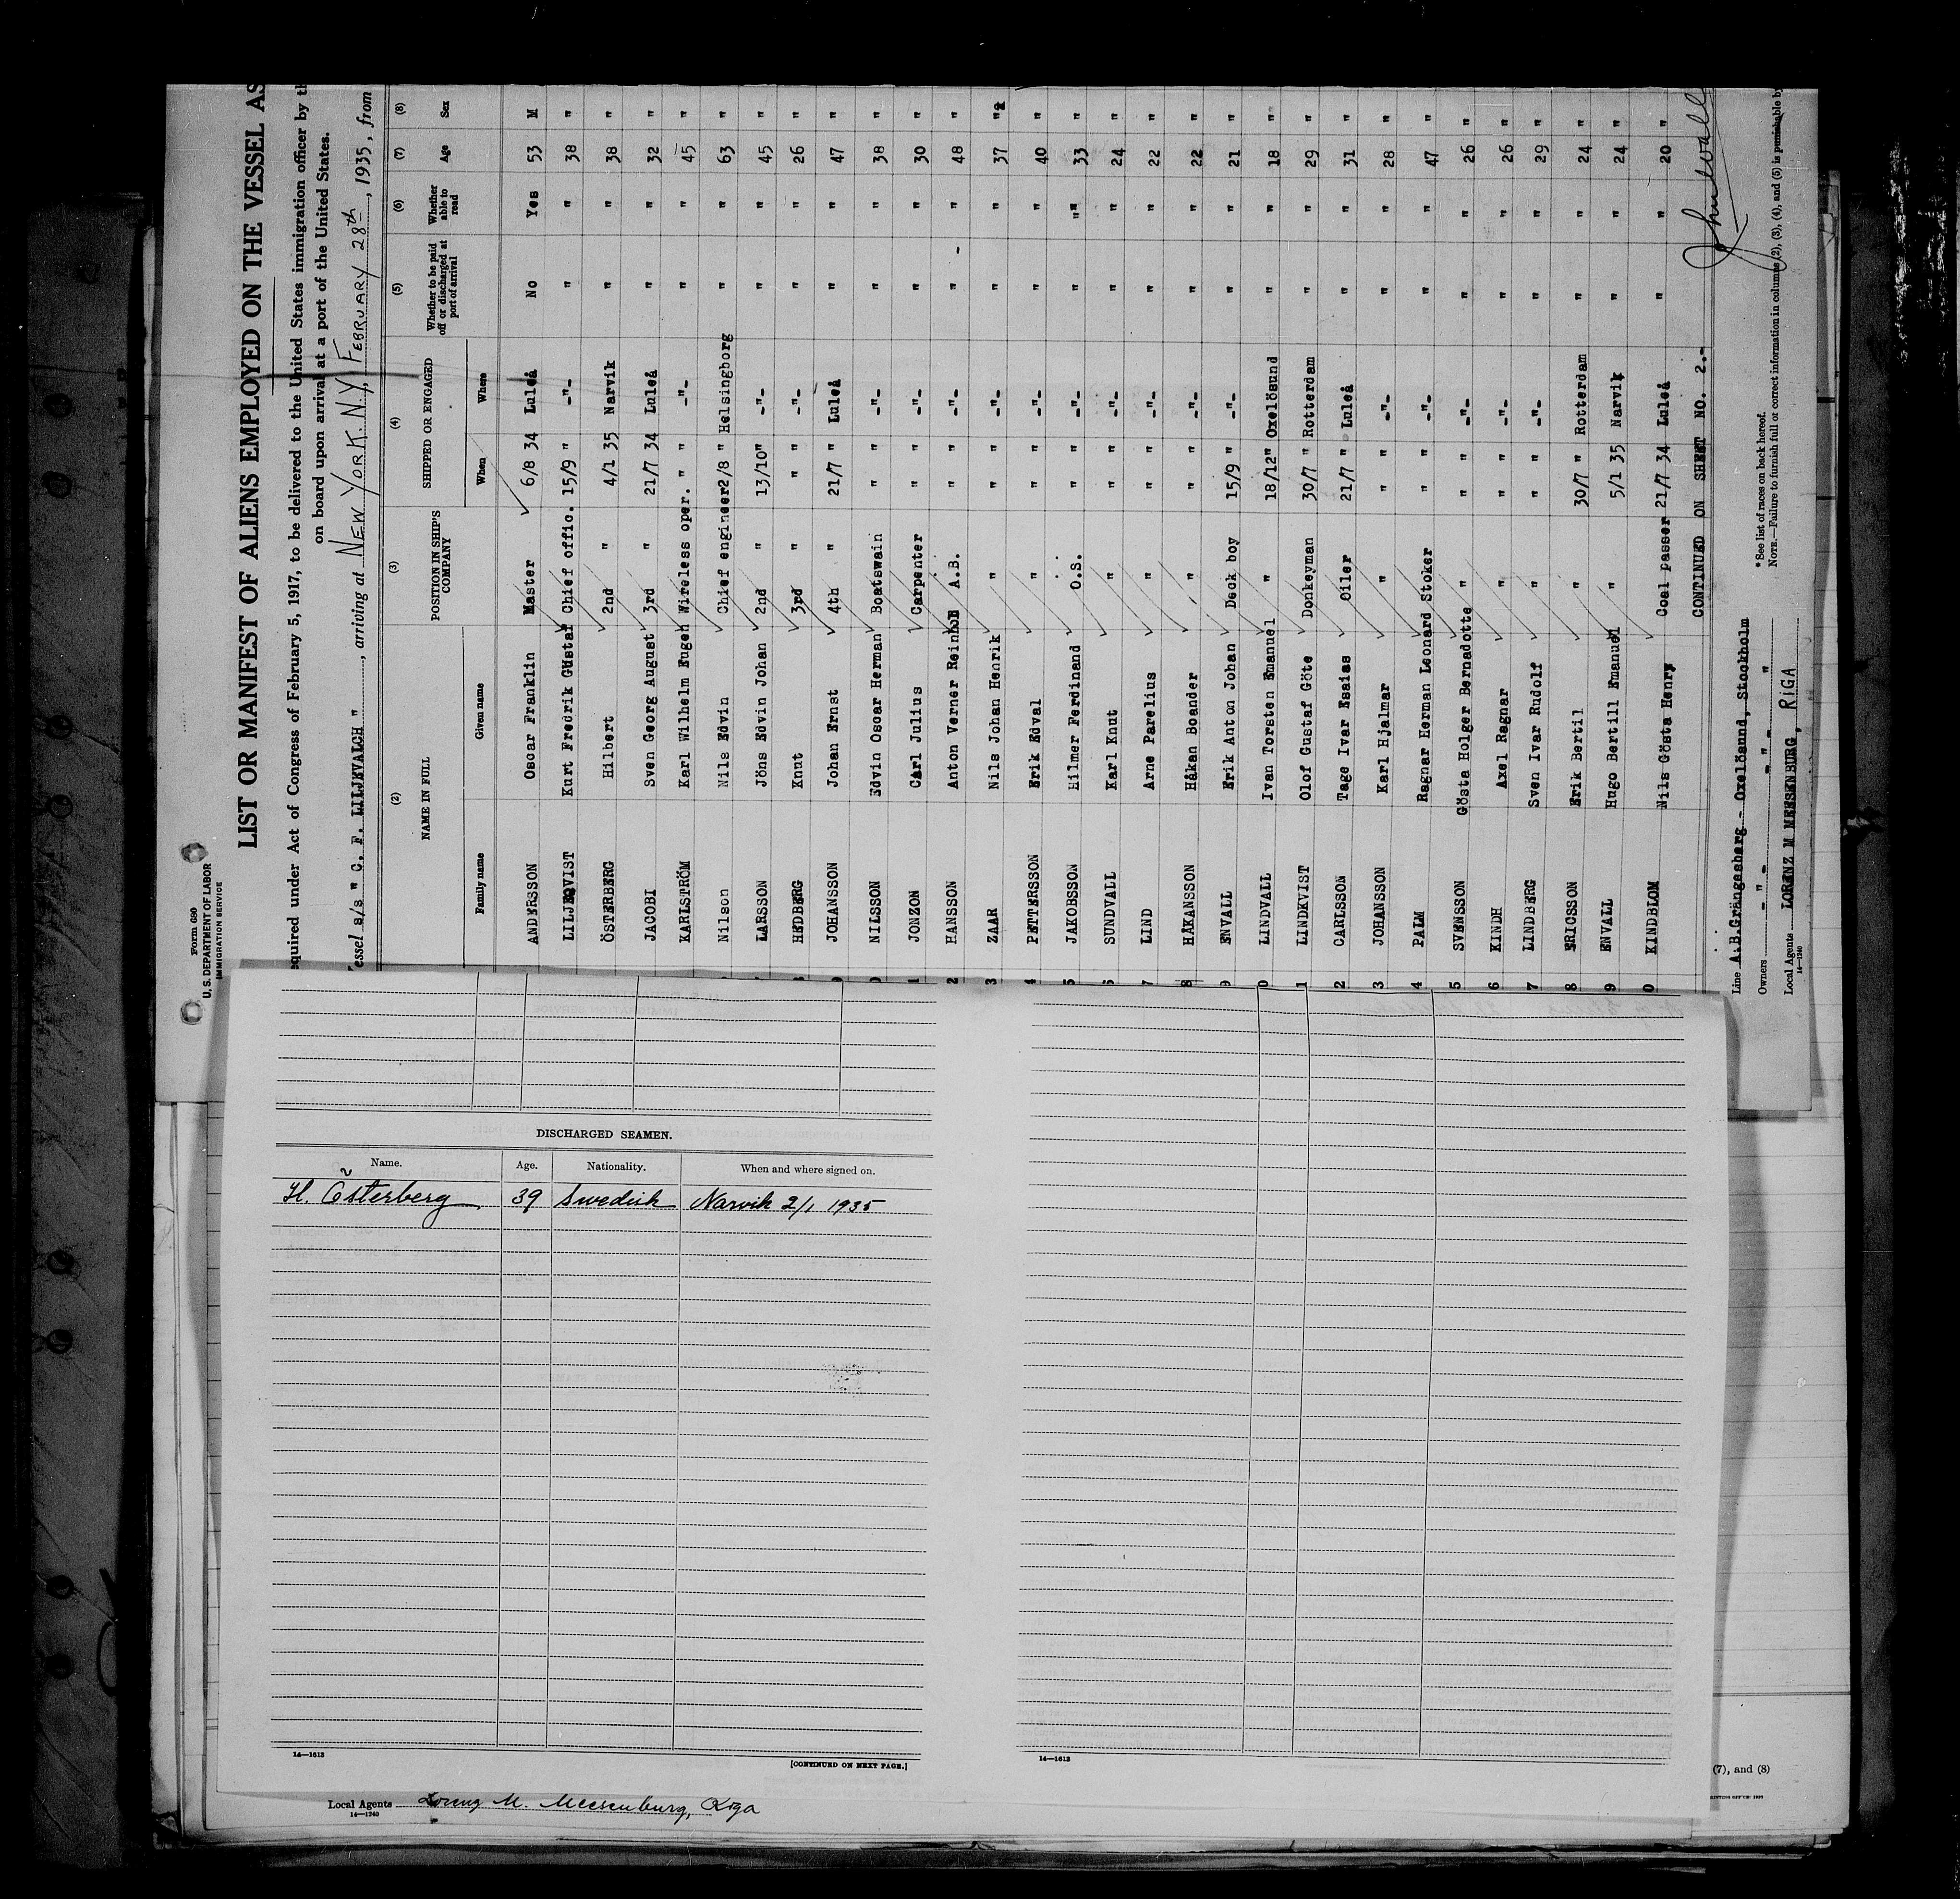 Form 680
U. S. DEPARTMENT OF LABOR
IMMIGRATION SERVICE
LIST OR MANIFEST OF ALIENS EMPLOYED ON THE VESSEL AS
equired under Act of Congress of February 5, 1917, to be delivered to the United States immigration officer by th
on board upon arrival at a port of the United States.
essel s/s " C. F. LILJEVALCH ", arriving at NEW YORK. N.Y, FEBRUARY 28th, 1935, from
(2) (3) (4) (5) (6) (7) (8)
NAME IN FULL POSITION IN SHIP'S COMPANY SHIPPED OR ENGAGED Whether to be paid off or discharged at port of arrival Whether able to read Age Sex
Family name Given name When Where
ANDERSSON Oscar Franklin Master 6/8 34 Luleå No Yes 53 M
LILJEQVIST Kurt Fredrik Gustaf Chief offic. 15/9 " -"- " " 38 "
ÖSTERBERG Hilbert 2nd " 4/1 35 Narvik " " 38 "
JACOBI Sven Georg August 3rd " 21/7 34 Luleå " " 32 "
KARLSTRÖM Karl Wilhelm Eugen Wireless oper. " " -"- " " 45 "
Nilson Nils Edvin Chief engineer 2/8 " Helsingborg " " 63 "
LARSSON Jöns Edvin Johan 2nd " 13/10" -"- " " 45 "
HEDBERG Knut 3rd " " " -"- " " 26 "
JOHANSSON Johan Ernst 4th " 21/7 " Luleå " " 47 "
0 NILSSON Edvin Oscar Herman Boatswain " " -"- " " 38 "
1 JONZON Carl Julius Carpenter " " -"- " " 30 "
2 HANSSON Anton Verner Reinhold A.B. " " -"- " " 48 "
3 ZAAR Nils Johan Henrik " " " -"- " " 37 "
4 PETTERSSON Erik Edval " " " -"- " " 40 "
5 JAKOBSSON Hilmer Ferdinand O.S. " " -"- " " 33 "
6 SUNDVALL Karl Knut " " " -"- " " 24 "
7 LIND Arne Parelius " " " -"- " " 22 "
8 HÅKANSSON Håkan Boander " " " -"- " " 22 "
9 ENVALL Erik Anton Johan Deck boy 15/9 " -"- " " 21 "
0 LINDVALL Ivan Torsten Emanuel " 18/12" Oxelösund " " 18 "
1 LINDKVIST Olof Gustaf Göte Donkeyman 30/7 " Rotterdam " " 29 "
2 CARLSSON Tage Ivar Esaias Oiler 21/7 " Luleå " " 31 "
3 JOHANSSON Karl Hjalmar " " " -"- " " 28 "
4 PALM Ragnar Herman Leonard Stoker " " -"- " " 47 "
5 SVENSSON Gösta Holger Bernadotte " " " -"- " " 26 "
6 KINDH Axel Ragnar " " " -"- " " 26 "
7 LINDBERG Sven Ivar Rudolf " " " -"- " " 29 "
8 ERICSSON Erik Bertil " 30/7 " Rotterdam " " 24 "
9 ENVALL Hugo Bertill Emanuel " 5/1 35 Narvik " " 24 "
0 KINDBLOM Nils Gösta Henry Coal passer 21/7 34 Luleå " " 20 "
CONTINUED ON SHEET NO. 2.-
Line A.B.Grängesberg - Oxelösund, Stockholm
Owners -"- -"-"- "
Local Agents LORENZ M MEESENBURG, RIGA
14—1240
* See list of races on back hereof.
NOTE.—Failure to furnish full or correct information in columns (2), (3), (4), and (5) is punishable by
DISCHARGED SEAMEN.
Name. Age. Nationality. When and where signed on.
H. Österberg 39 Swedish Narvik 2/1 1935
14—1613 [CONTINUED ON NEXT PAGE.]
14—1613
Local Agents Lorenz M. Meesenburg, Riga
14—1240
(7), and (8)